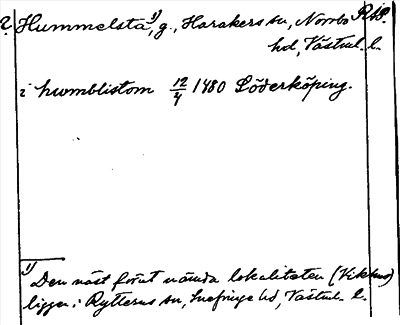 ? Hummelsta¹⁾, g., Harakers sn, Norrbo
hd, Västml. l.
i humblistom 12/4 1480 Söderköping.
¹⁾ Den näst förut nämda lokaliteten (Vikhus)
ligger i Rytterns sn, Snefringe hd, Västml. l.